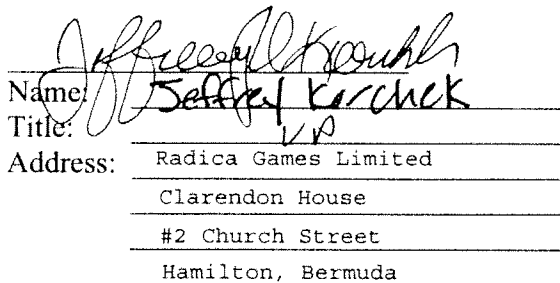 Name: Jeffrey Korchek
Title: VP
Address: Radica Games Limited
Clarendon House
#2 Church Street
Hamilton, Bermuda